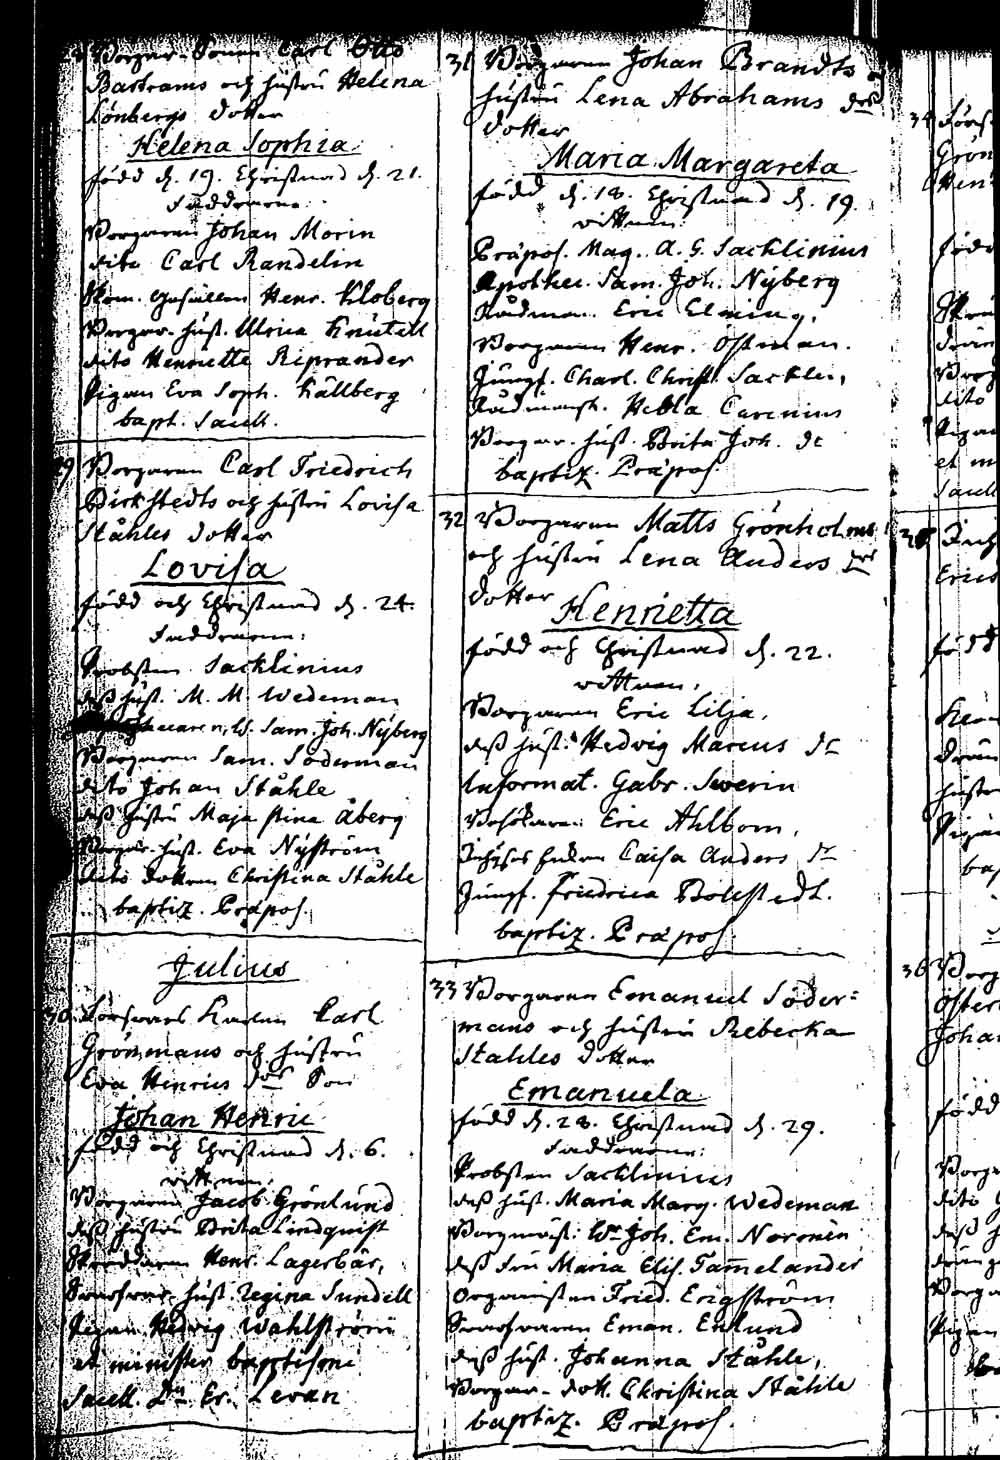 Borgar-Sonen Carl Otto
Bartrams och hustru Helena
Lönbergs dotter
Helena Sophia
född d. 19. Christnad d. 21.
Faddrarne
Borgaren Johan Morin
dito Carl Randelin
Gesällen Henr. Kloberg
Borgar-hust. Ulrica Knutell
dito Henriette Riprander
Pigan Eva Soph. Källberg
bapt. Sacell.
29 Borgaren Carl Friedrich
Dickstedts och hustru Lovisa
Ståhles dotter
Lovisa
född och Christnad d. 24.
Faddrarne:
Probsten Sacklinius
deß hust. M. M. Wedeman
Sam. Joh. Nyberg
Borgaren Sam. Söderman
dito Johan Ståhle
deß hustru Maja Stina Åberg
Borgar-hust. Eva Nyström
dito dottren Christina Ståhle
baptiz. Præpos.
Julius
30. Carl
Grönmans och hustru
Eva Henrics dr Son
Johan Henric
född och Christnad d. 6.
vittnen:
Borgaren Jacob Grönlund
deß hustru Brita Lindquist
Skräddaren Henr. Lagerbär,
hust. Regina Sundell
Pigan Hedvig Wahlström
et minister baptismi
Sacell. Dn. Er. Levan
31 Borgaren Johan Brandts o
hustru Lena Abrahams drs
dotter
Maria Margareta
född d. 18. Christnad d. 19.
vittnen
Præpos. Mag. A. G. Sacklinius
Apothec. Sam. Joh. Nyberg
Rådman Eric Elming,
Borgaren Henr. Östman.
Jungf. Charl. Christ. Sacklin,
Hebla Carenius
Borgar-hust. Brita Joh. dr
baptiz. Præpos.
32 Borgaren Matts Grönholms
och hustru Lena Anders drs
dotter
Henrietta
född och Christnad d. 22.
vittnen,
Borgaren Eric Lilja,
deß hust. Hedvig Marcus dr
Informat. Gabr. Swerin
Eric Ahlbom,
Caisa Anders dr
Jungf. Friedrica Bollstedt.
baptiz. Præpos.
33 Borgaren Emanuel Söder=
mans och hustru Rebecka
Stahles dotter
Emanuela
född d. 28. Christnad d. 29.
Faddrarne:
Probsten Sacklinius
deß hust. Maria Marg. Wedeman
Borgmäst. Wr Joh. Em. Norenén
deß fru Maria Elis. Tam̅elander
Organisten Fried. Engström
Eman. Enlund
deß hust. Johanna Ståhle,
Borgar-dott. Christina Ståhle
baptiz. Præpos.
34
Grön
Hen
född
dito
et m
Sacell
35
Erics
född
bap
36 Borg
Öster
Johan
född
Borga
dito
deß h
Borga
Pigan